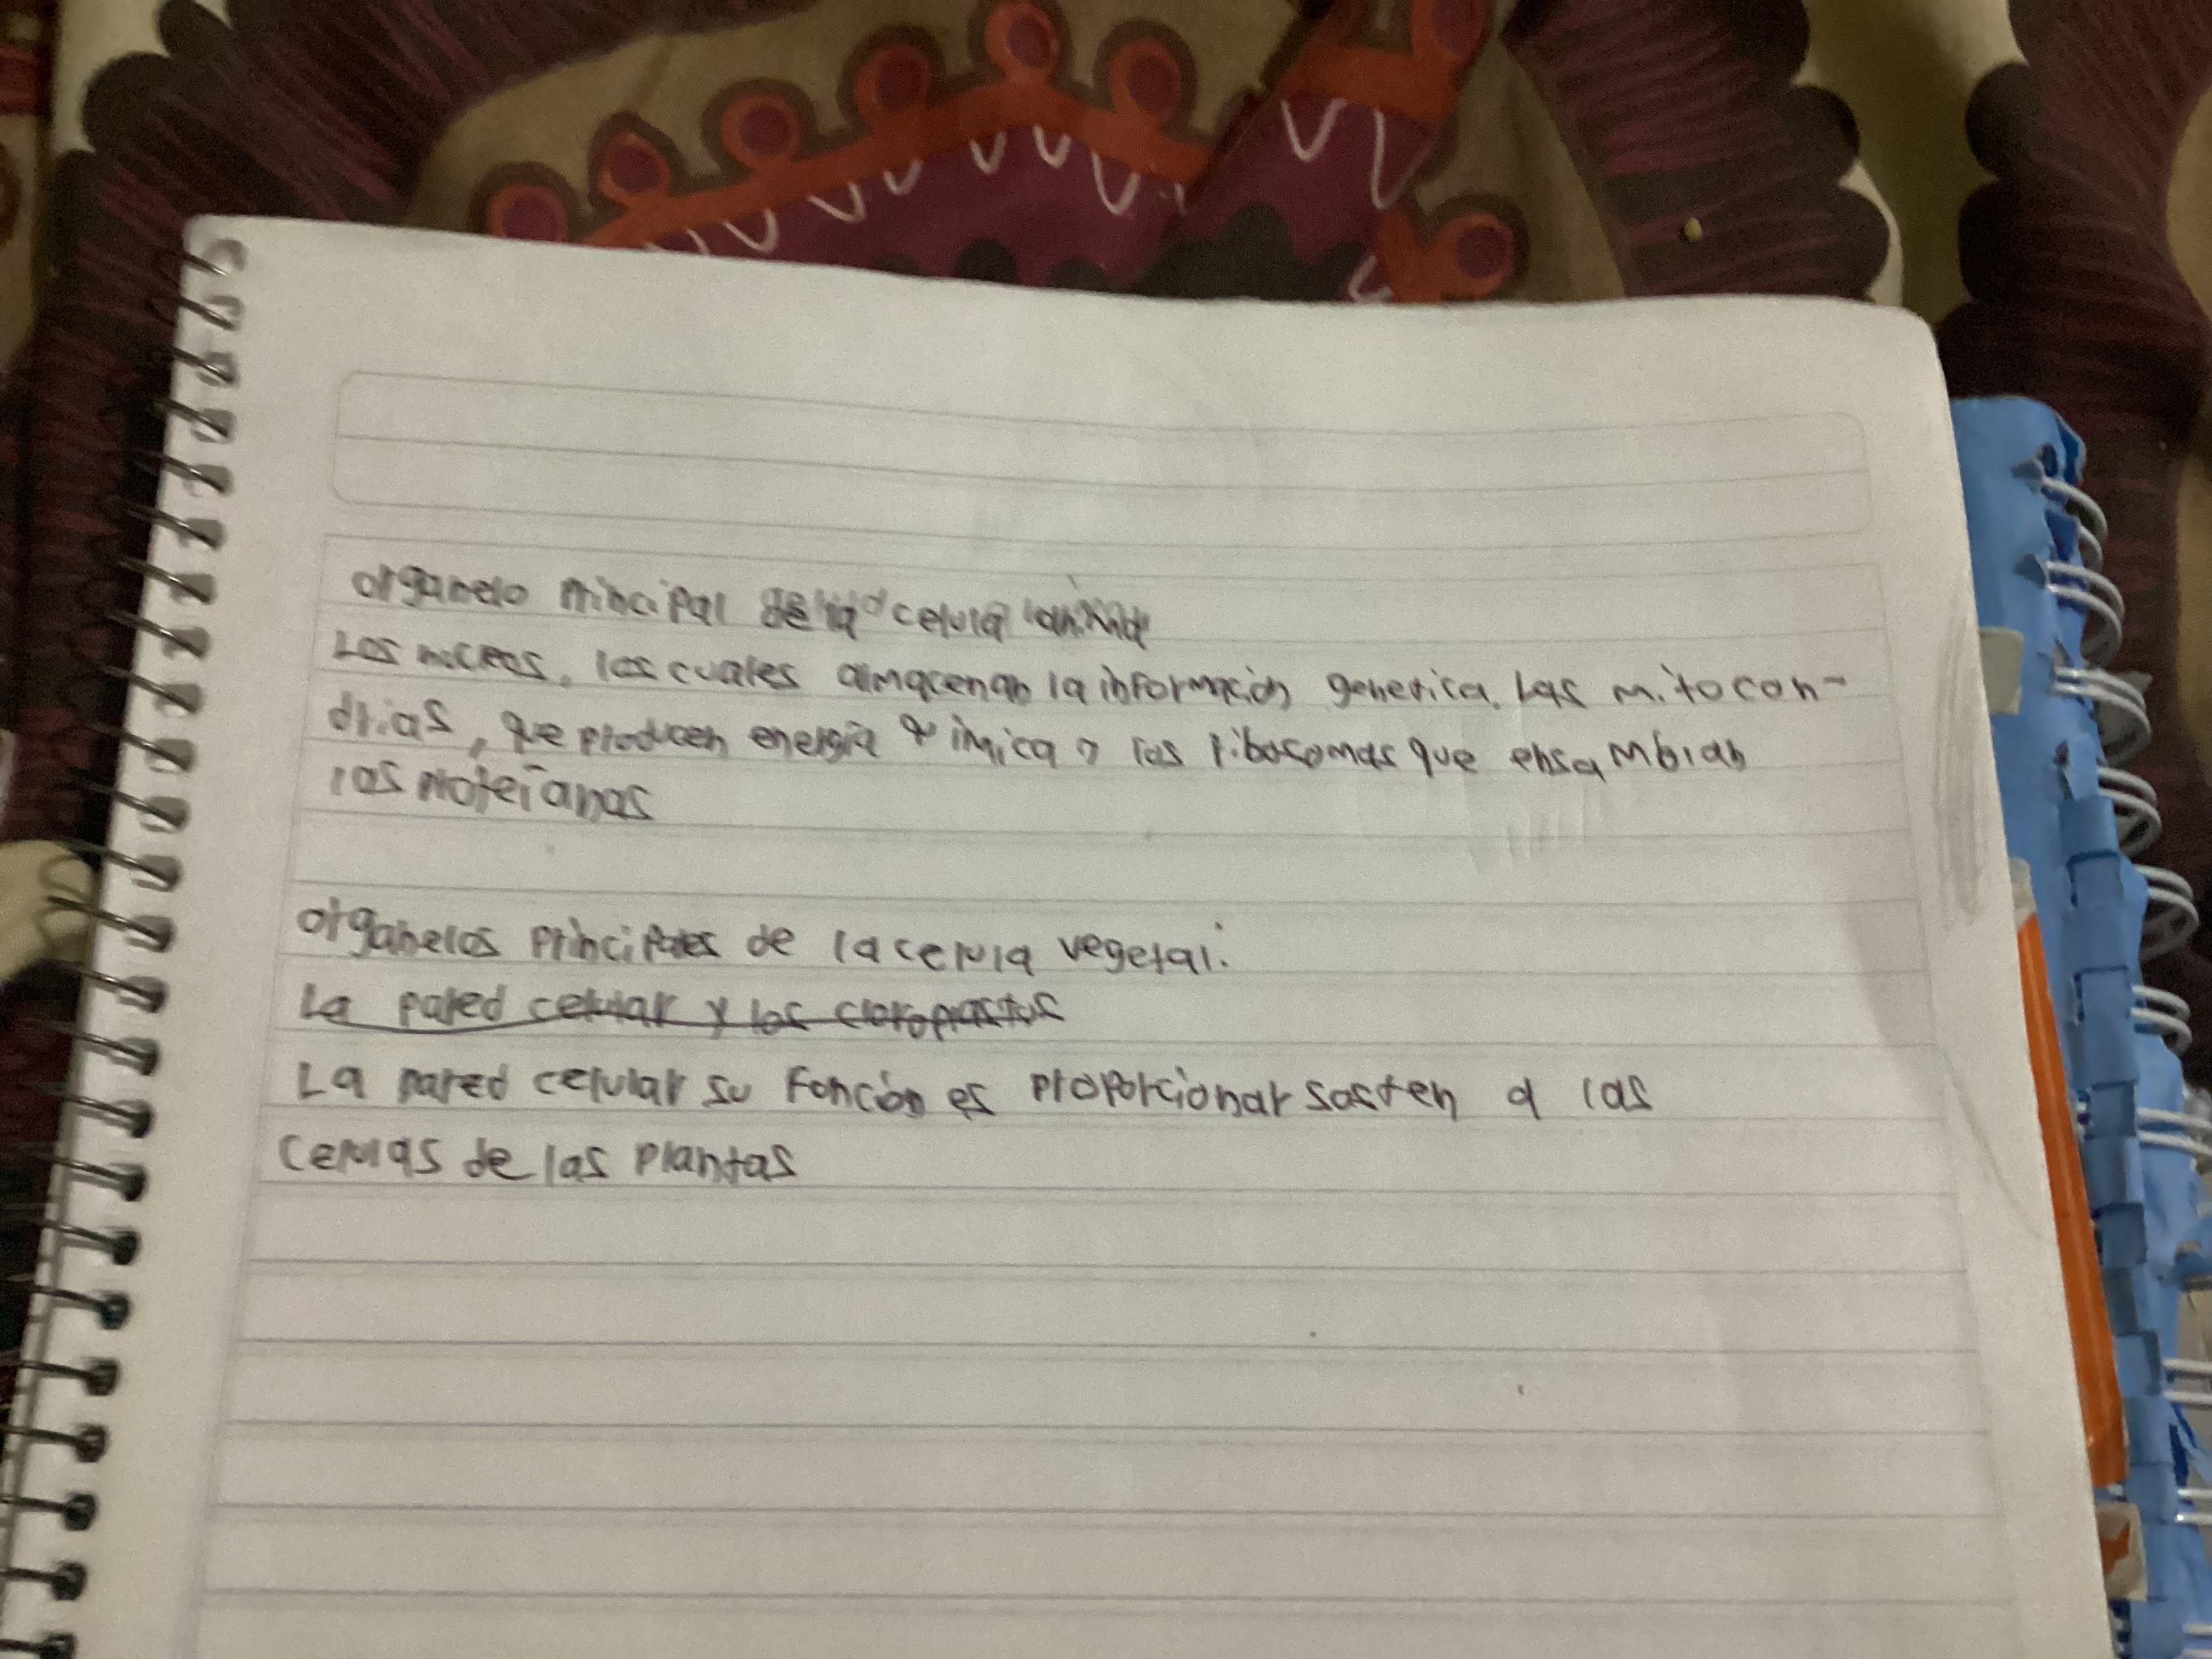 organelo principal de la celula animal
Los nucleos, los cuales almacenan la información genetica. Las mitocon-
drias, que producen energía quimica y los ribosomas que ensamblan
las proteianas
organelos principales de la celula vegetal.
La pared celular y los cloroplastos
La pared celular su función es proporcionar sosten a las
celulas de las plantas